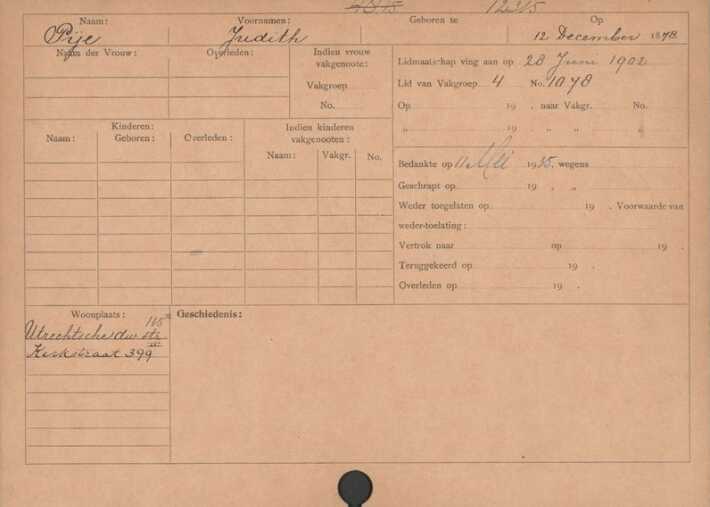 4815 12315
Naam: Voornamen: Geboren te Op
Pije Judith 12 December 1878
Naam der Vrouw: Overleden: Indien vrouw vakgenoote: Lidmaatschap ving aan op 28 Juni 1902
Vakgroep Lid van Vakgroep 4 No. 1078
No. Op 19 , naar Vakgr. No.
„ 19 „ „ „
Kinderen: Indien kinderen vakgenooten:
Naam: Geboren: Overleden: Naam: Vakgr. No.
Bedankte op 11 Mei 1935, wegens
Geschrapt op 19 , „
Weder toegelaten op 19 . Voorwaarde van
weder-toelating:
Vertrok naar op 19 .
Teruggekeerd op 19 .
Overleden op 19 .
Woonplaats: Geschiedenis:
Utrechtsche dw str 115
Kerkstraat 399